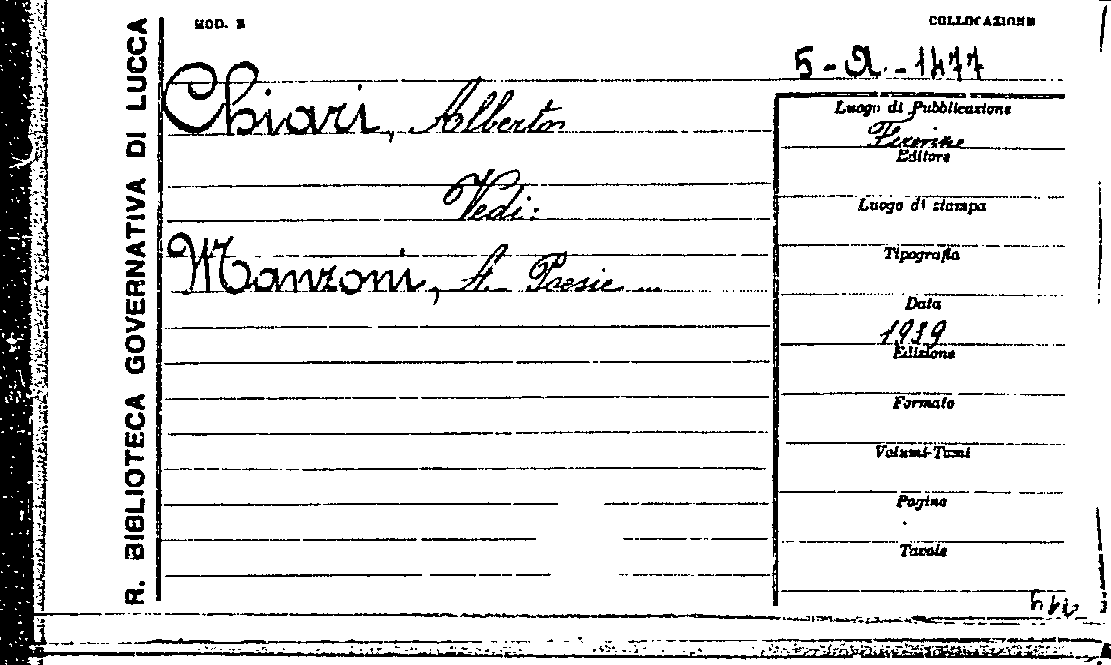 MOD. B
COLLOCAZIONE
R. BIBLIOTECA GOVERNATIVA DI LUCCA
5 - A. - 1477
Chiari, Alberto
Vedi:
Manzoni, A. Poesie ...
Luogo di Pubblicazione
Firenze
Editore
Luogo di stampa
Tipografia
Data
1939
Edizione
Formato
Volumi-Tomi
Pagine
Tavole